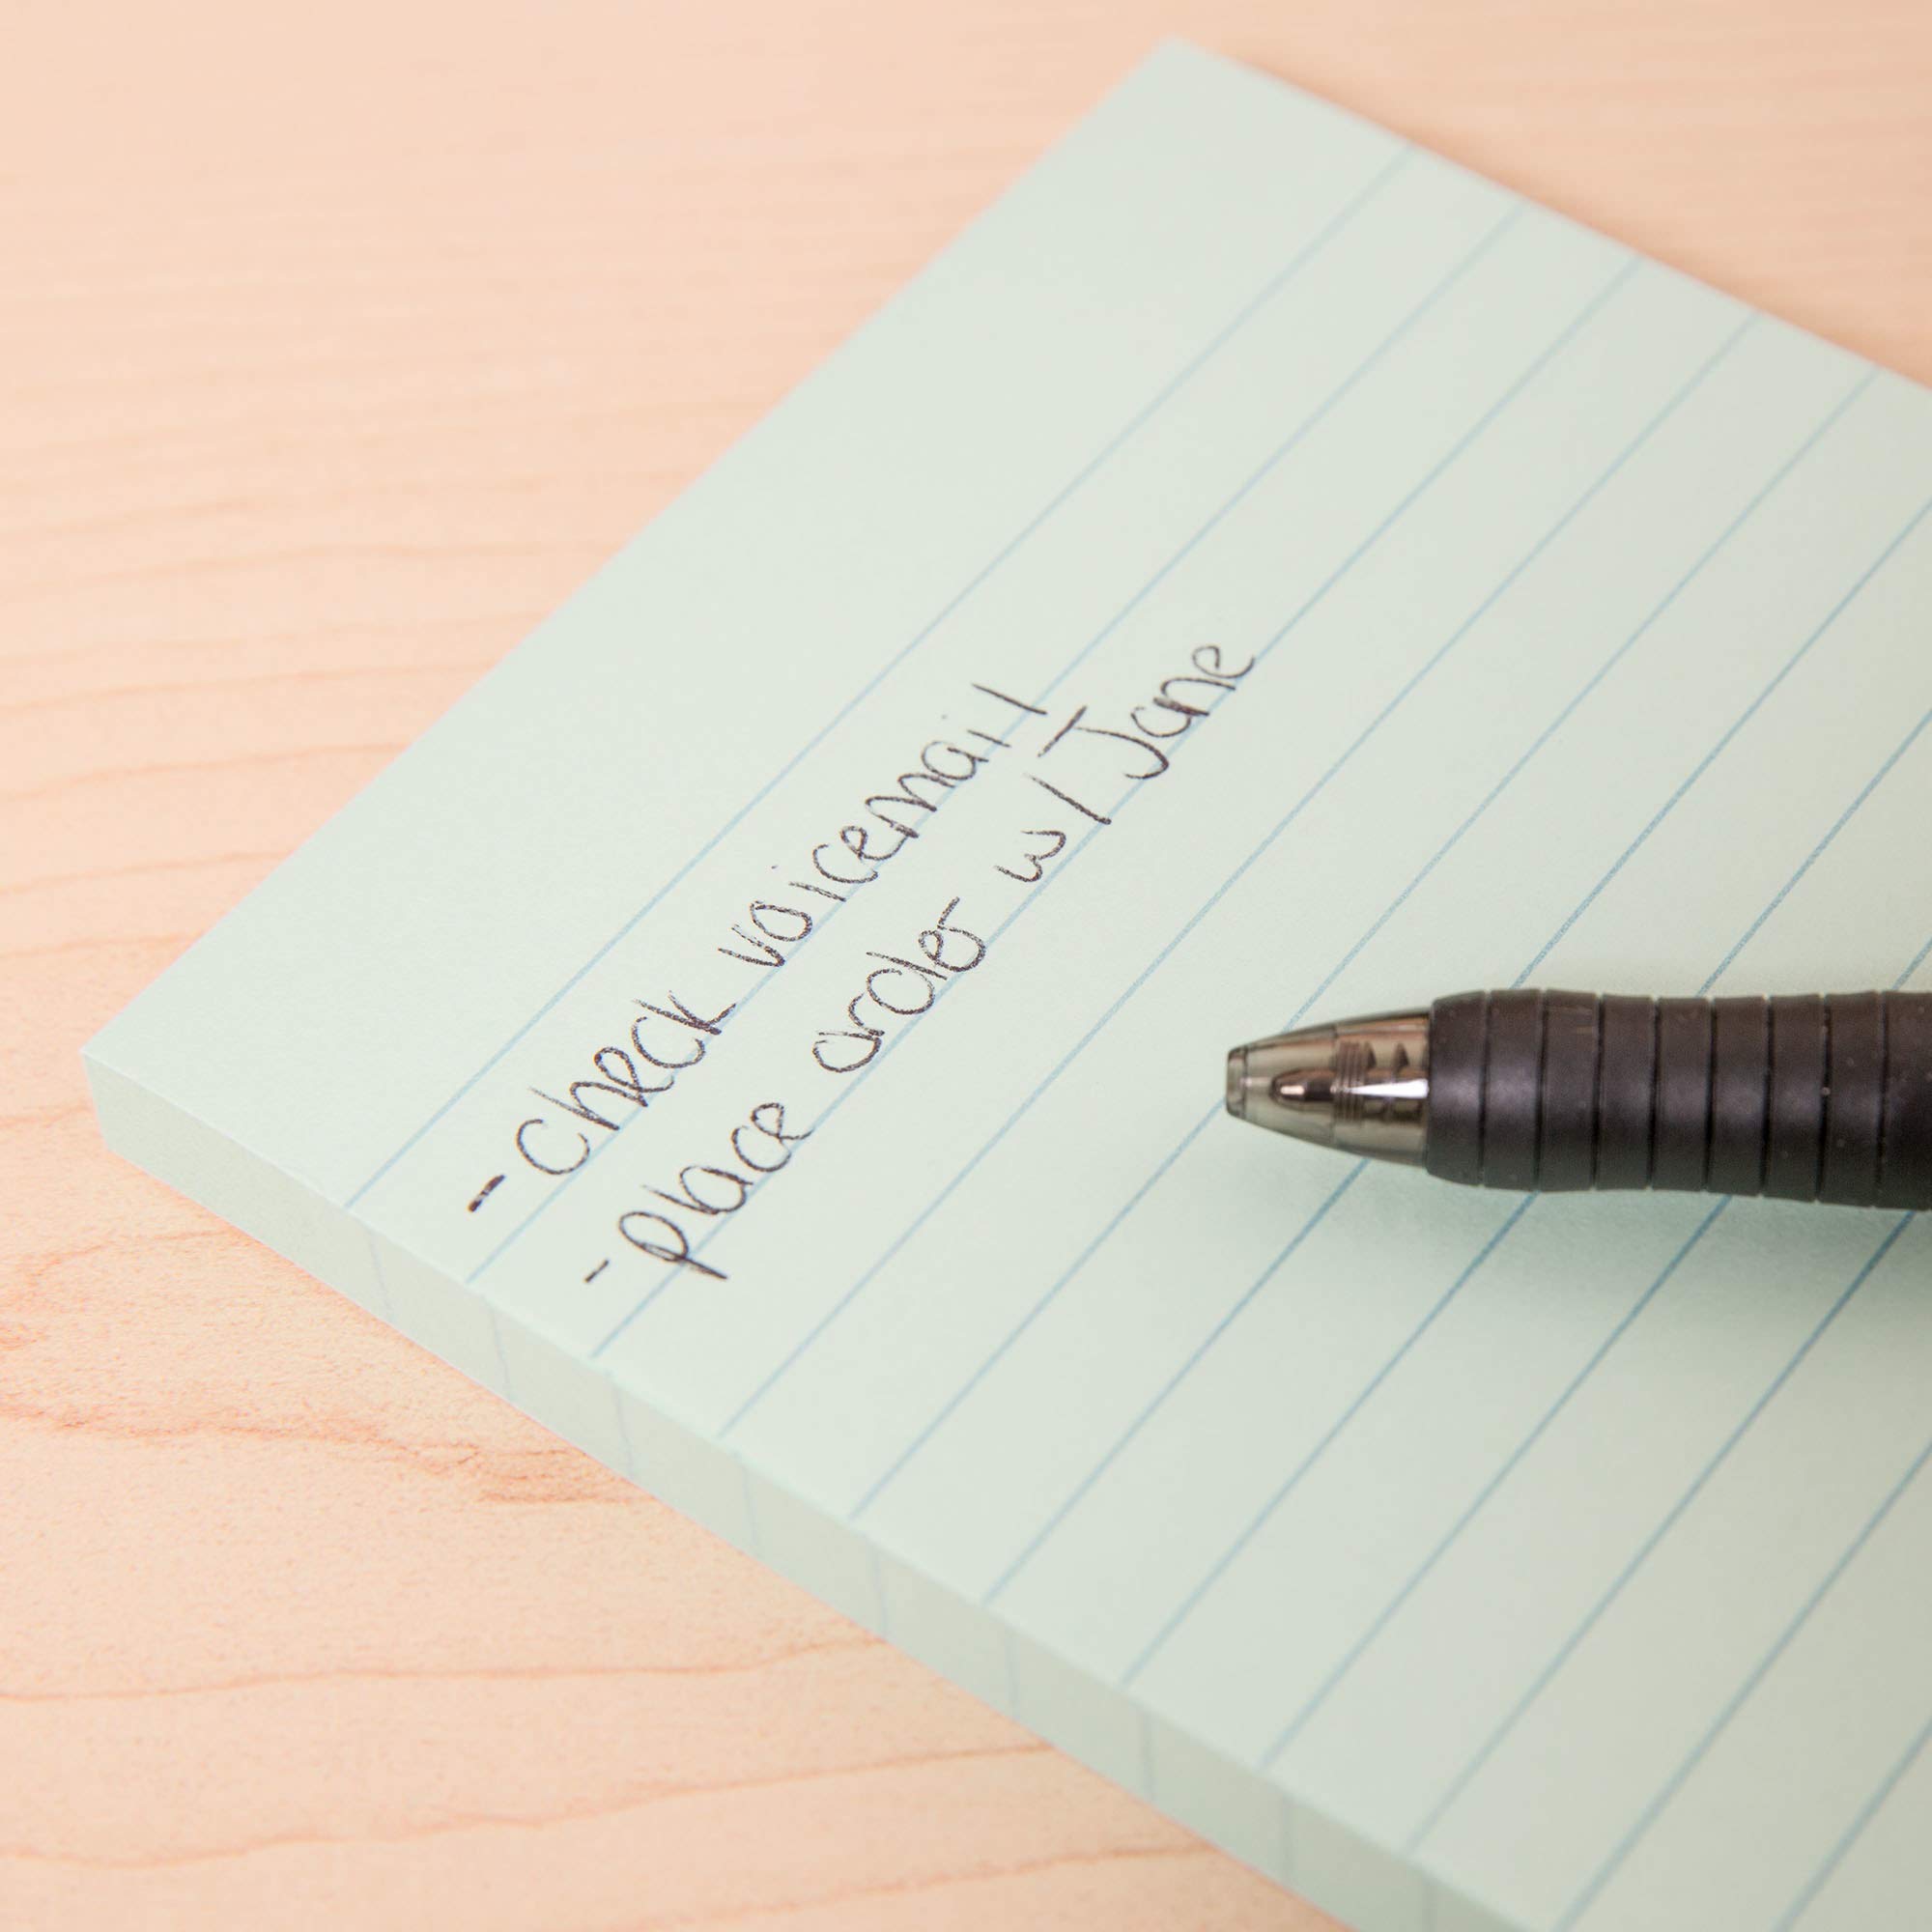 - Check voicemail
- place order w/ Jane